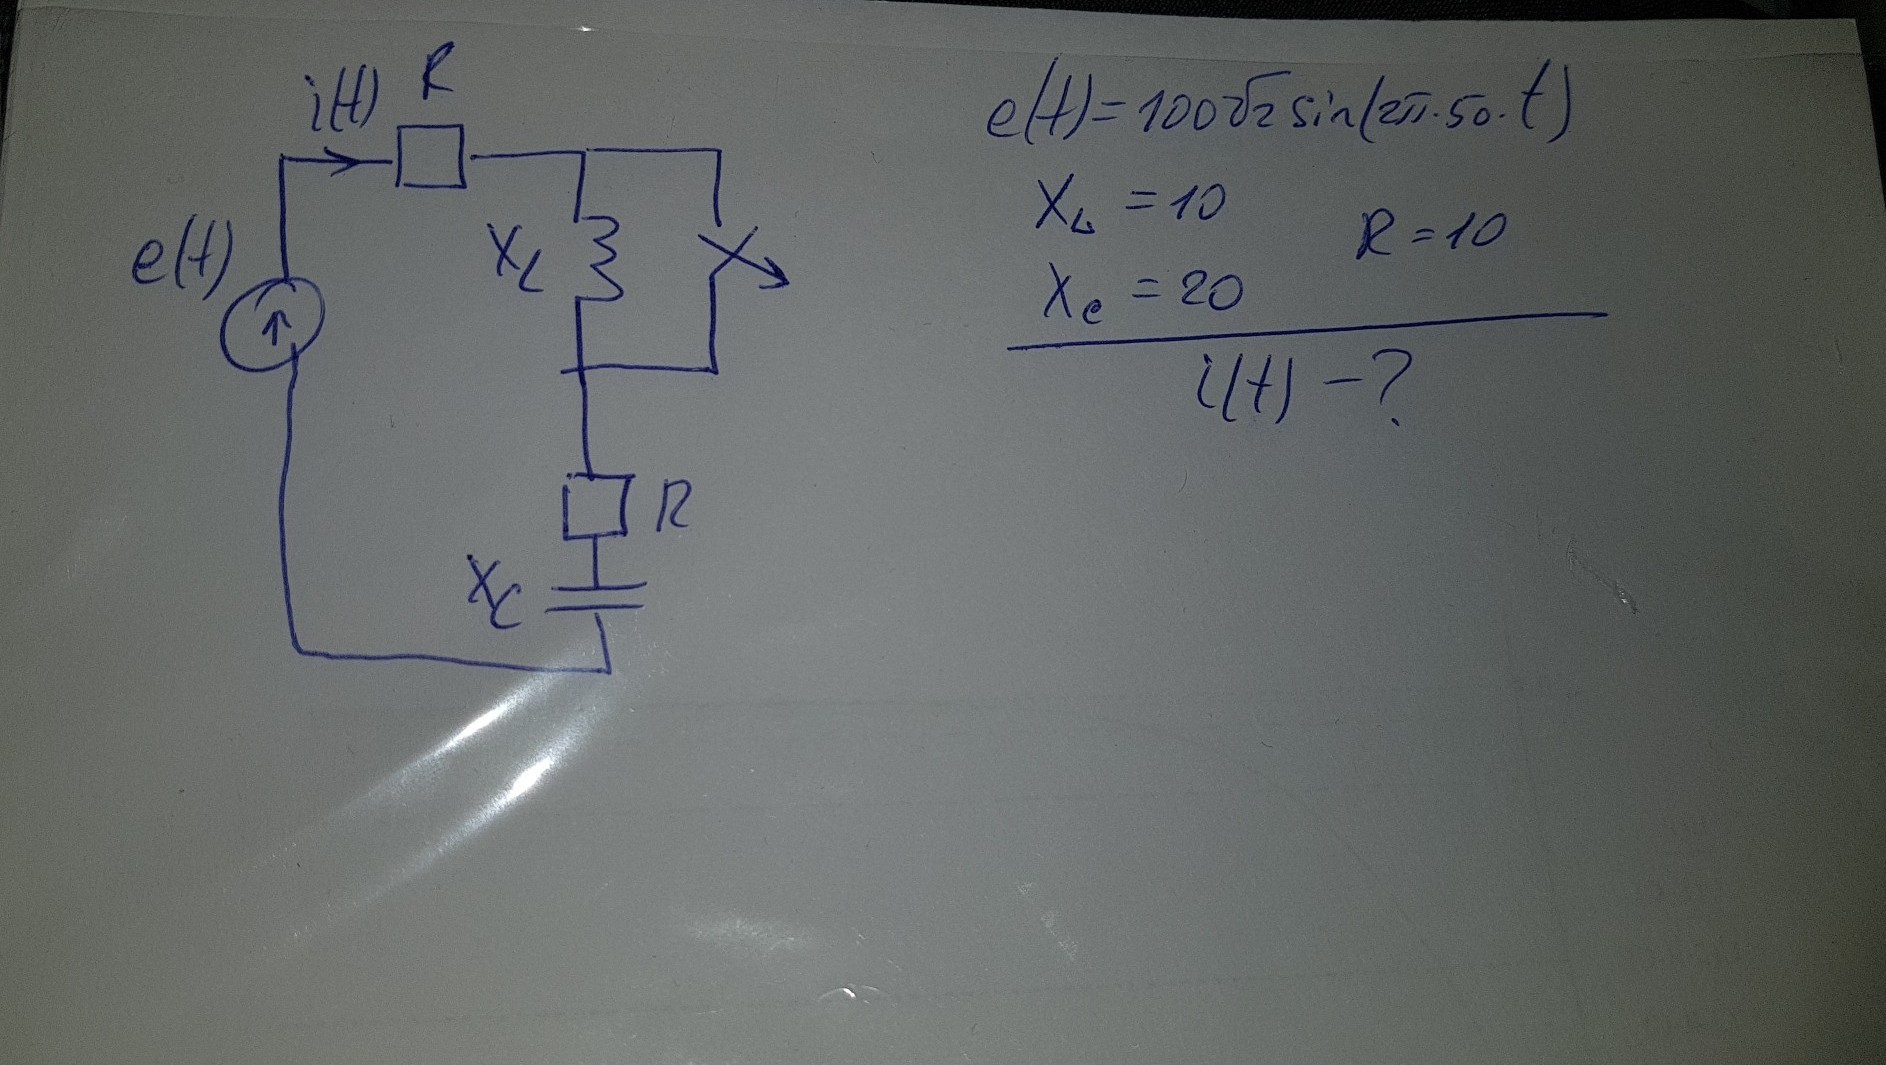 i(t) R
e(t)
X_L
R
X_C
e(t)=100√2 sin(2π·50·t)
X_L = 10
R = 10
X_e = 20
i(t) – ?